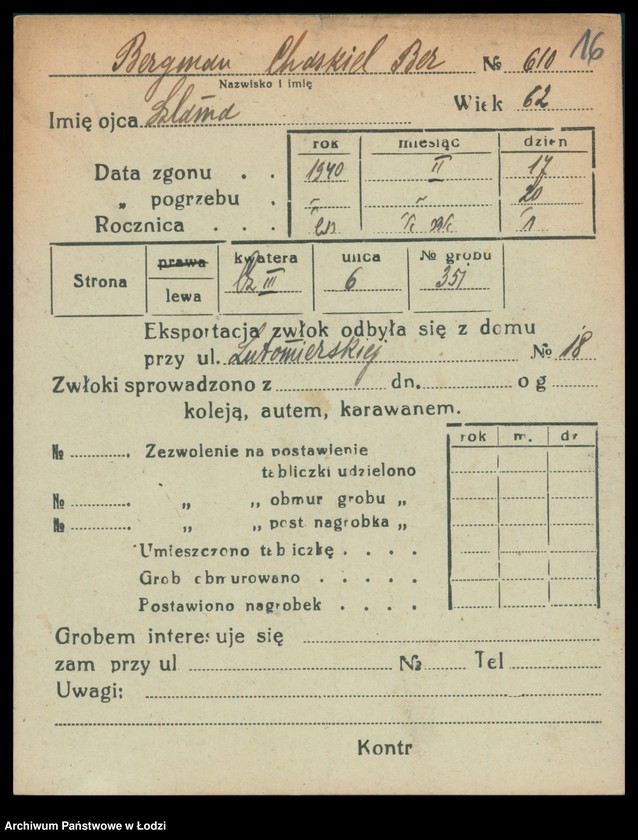 Bergman Chaskiel Ber № 610 16
Nazwisko i imię
Imię ojca Szlama Wiek 62
rok miesiąc dzień
Data zgonu . . 1940 II 17
„ pogrzebu . „ „ 20
Rocznica . . .
Strona prawa lewa kwatera III ulica 6 № grobu 351
Eksportacja zwłok odbyła się z domu
przy ul. Lutomierskiej № 18
Zwłoki sprowadzono z dn. o g
koleją, autem, karawanem.
rok m. dz
№ . Zezwolenie na postawienie
tabliczki udzielono
№ . „ „ obmur grobu „
№ . „ „ post. nagrobka „
Umieszczono tabliczkę . . . .
Grob obmurowano . . . . .
Postawiono nagrobek . . . .
Grobem interesuje się
zam przy ul № Tel
Uwagi:
Kontr
Archiwum Państwowe w Łodzi